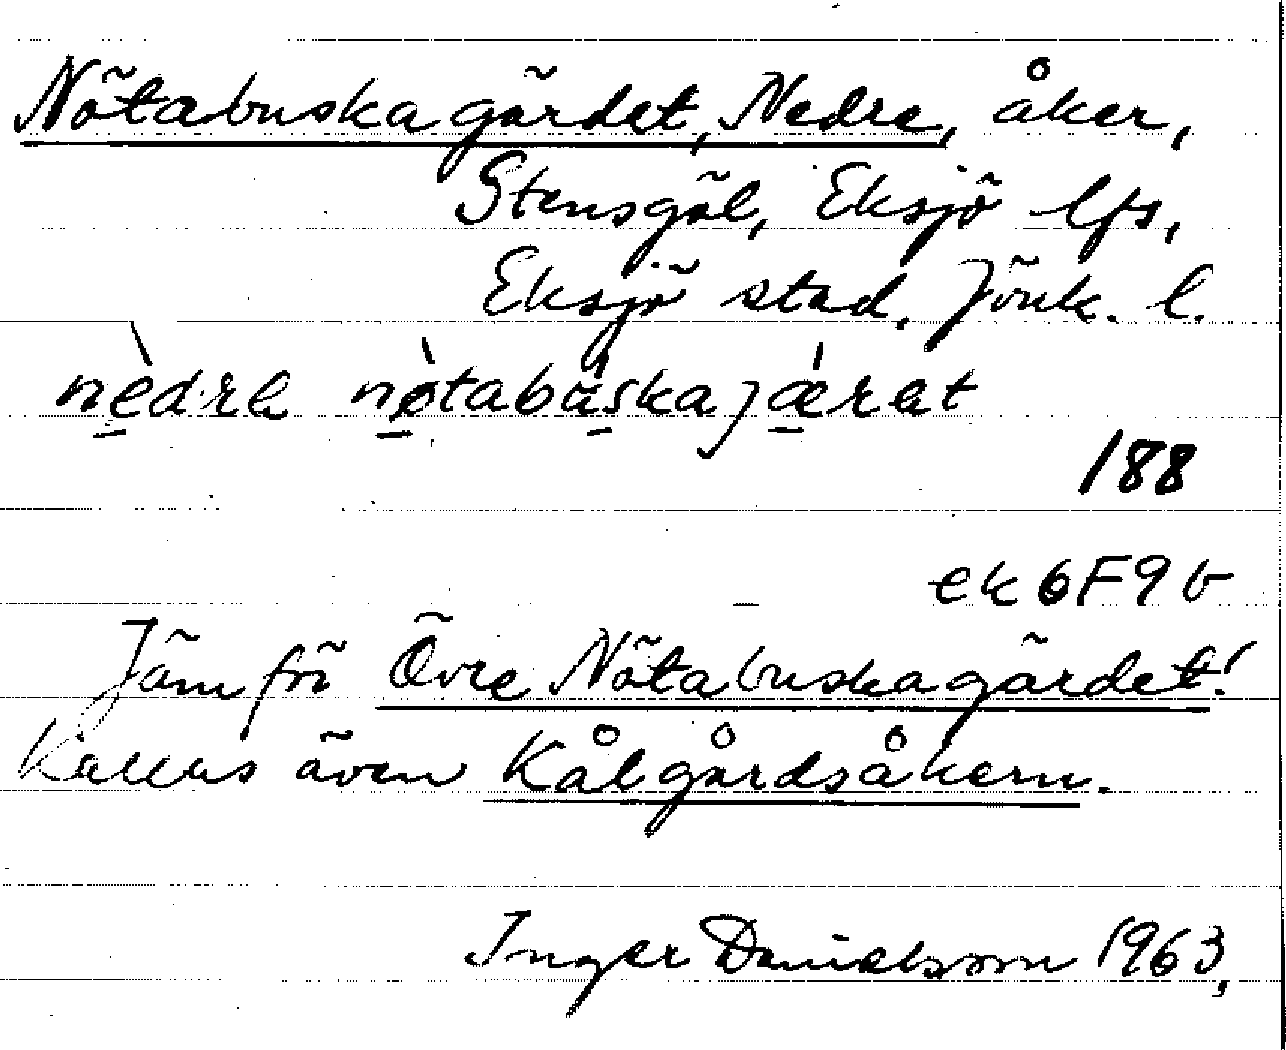 Nötabuskagärdet, Nedre, åker,
Stensgöl, Eksjö lfs,
Eksjö stad, Jönk. l.
nèdrɐ nø̀tabùskajǽrɐt
188
ek 6F9b
Jämför Övre Nötabuskagärdet!
Kallas även Kålgårdsåkern.
Inger Danielsson 1963,